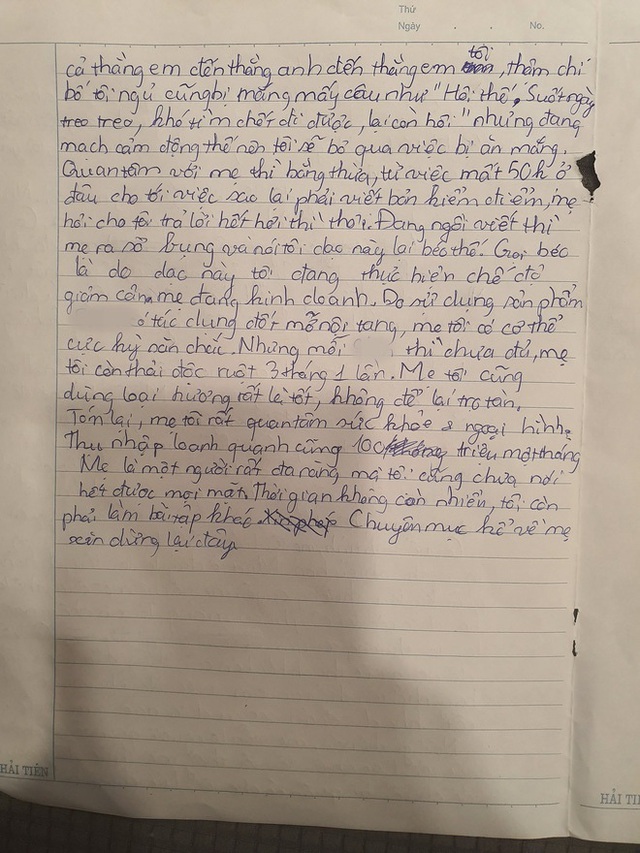 Thứ
Ngày . . No.
cả thằng em đến thằng anh đến thằng em tôi, thậm chí
bố tôi ngủ cũng bị mắng mấy câu như "Hôi thế, Suốt ngày
treo treo, khó tìm chết đi được, lại còn hôi" nhưng đang
mạch cảm động thế nên tôi sẽ bỏ qua việc bị ăn mắng.
Quan tâm với mẹ thì bằng thừa, từ việc mất 50k ở
đâu cho tới việc sao lại phải viết bản kiểm điểm, mẹ
hỏi cho tôi trả lời hết hơi thì thôi. Đang ngồi viết thì
mẹ ra sờ bụng và nói tôi dạo này lại béo thế. Gọi béo
là do dạo này tôi đang thực hiện chế độ
giảm cân mẹ đang kinh doanh. Do sử dụng sản phẩm
ó tác dụng đốt mỡ nội tạng, mẹ tôi có cơ thể
cực kỳ săn chắc. Nhưng mỗi thì chưa đủ, mẹ
tôi còn thải độc ruột 3 tháng 1 lần. Mẹ tôi cũng
dùng loại hương rất là tốt, không để lại trọ tàn.
Tóm lại, mẹ tôi rất quan tâm sức khỏe & ngoại hình.
Thu nhập loanh quanh cũng 100 triệu một tháng
Mẹ là một người rất đa năng mà tôi cũng chưa nói
hết được mọi mặt. Thời gian không còn nhiều, tôi còn
phải làm bài tập khác. Chuyên mục kể về mẹ
xin dừng lại đây.
HẢI TIẾN
HẢI TI